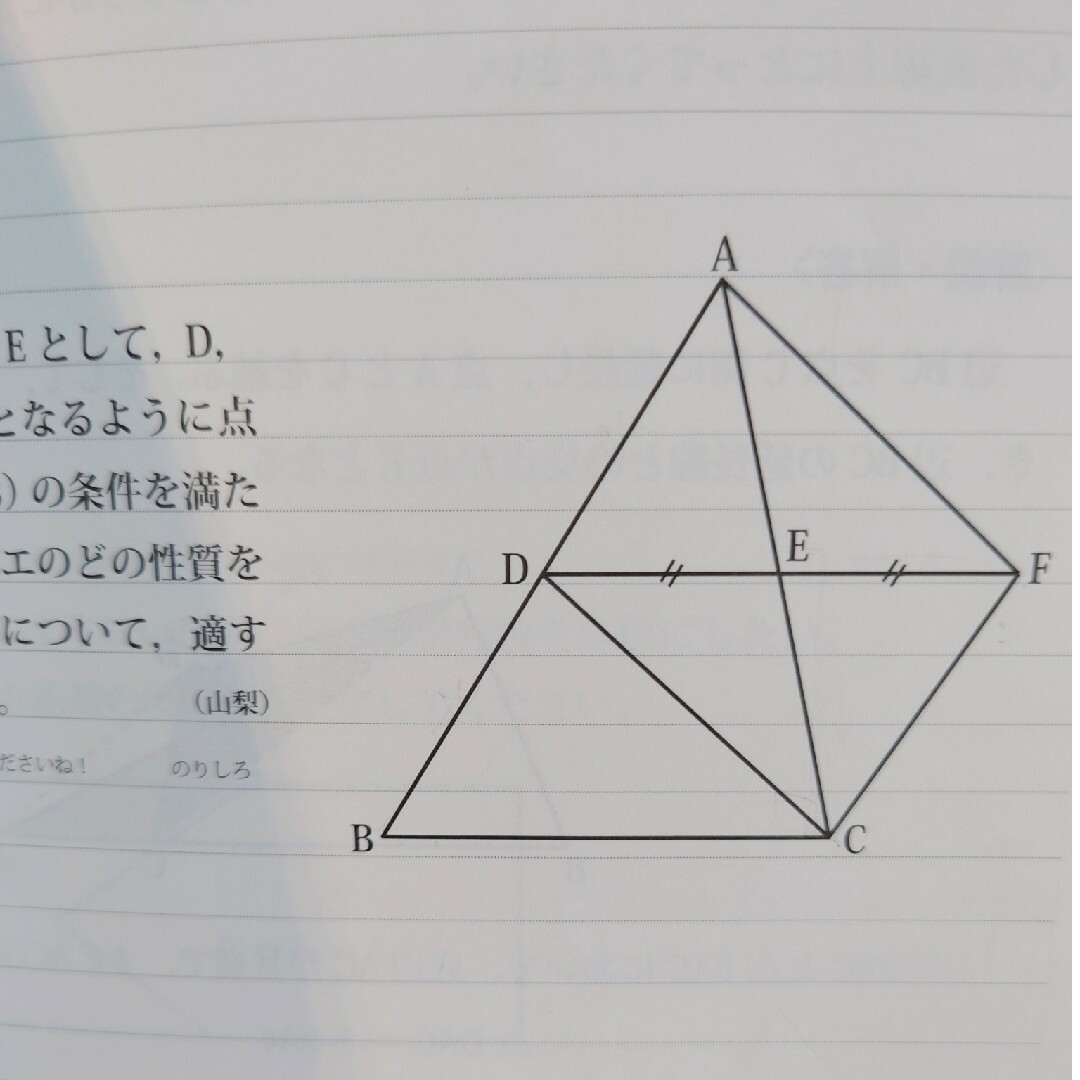 Eとして，D，
となるように点
)の条件を満た
エのどの性質を
について，適す
。（山梨）
ださいね！ のりしろ
A
E
D
F
B
C